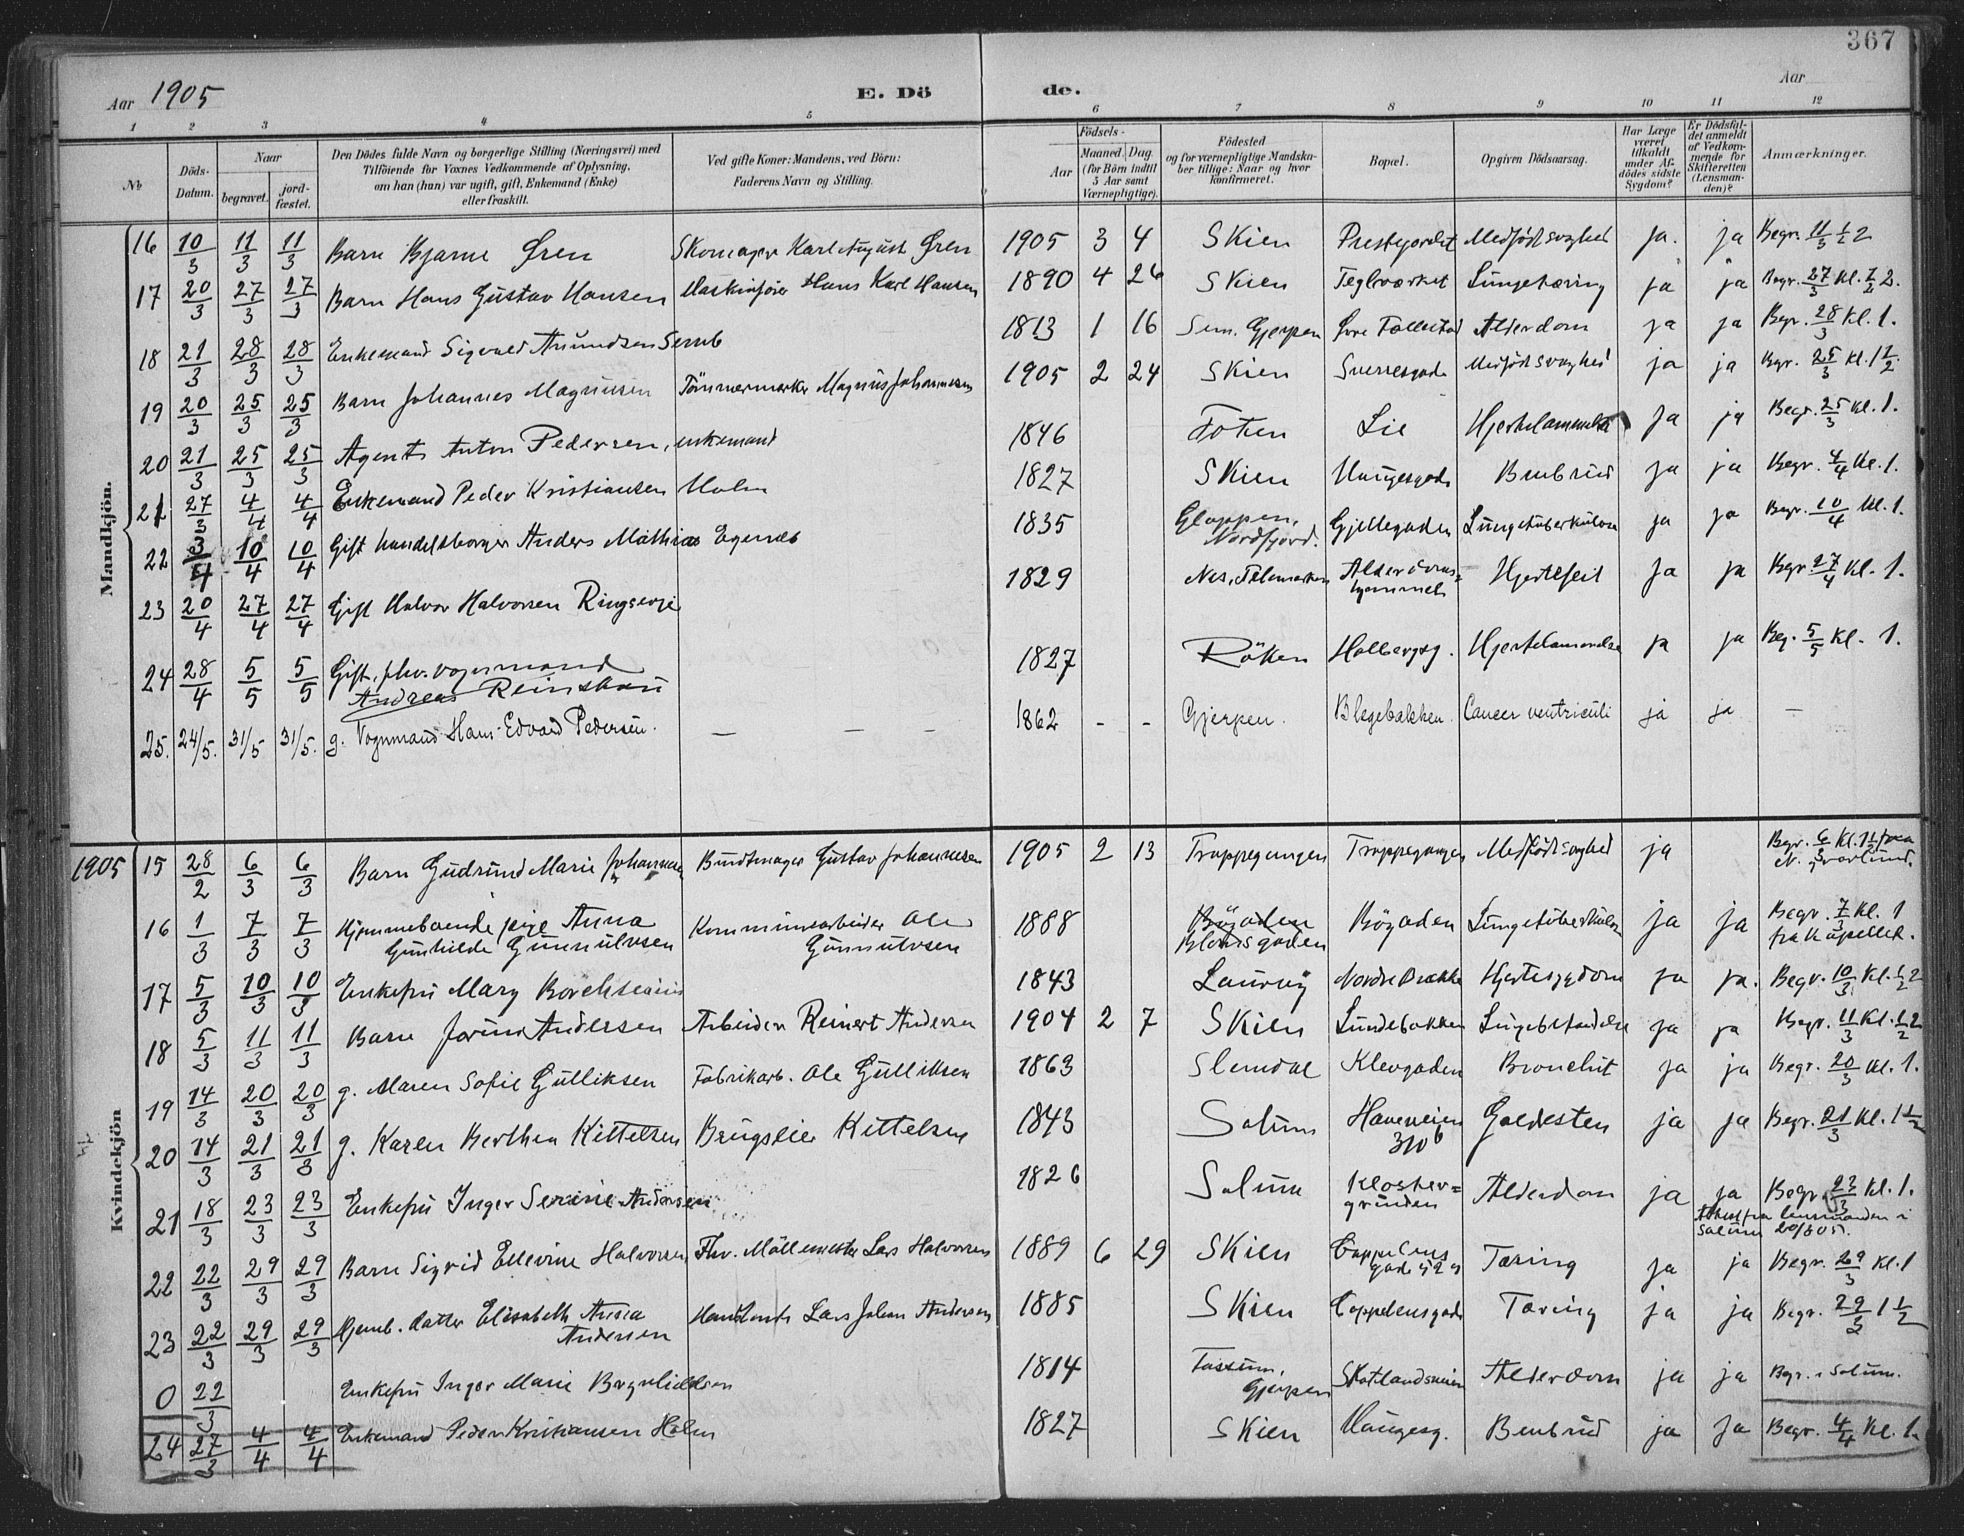 367
Aar 1905 E. Dö de. Aar
1 2 3 4 5 6 7 8 9 10 11 12
№ Döds-Datum. Naar begravet. jordfæstet. Den Dödes fulde Navn og borgerlige Stilling (Næringsvei) med Tilföiende for Voxnes Vedkommende af Oplysning, om han (hun) var ugift, gift, Enkemand (Enke) eller fraskilt. Ved gifte Koner: Mandens, ved Börn: Faderens Navn og Stilling. Födsels- Aar Maaned. Dag. (for Börn indtil 3 Aar samt Værnepligtige). Födested og for værnepligtige Mandskaber tillige: Naar og hvor konfirmeret. Bopæl. Opgiven Dödsaarsag. Har Læge været tilkaldt under Afdödes sidste Sygdom? Er Dödsfaldet anmeldt af Vedkommende for Skifteretten (Lensmanden)? Anmærkninger.
Mandkjön.
16 10/3 11/3 11/3 Barn Bjarne Øren Skomager Karl August Øren 1905 3 4 Skien Prestejordet Medfödt svaghed ja. ja Begr. 11/3 1/2 2
17 20/3 27/3 27/3 Barn Hans Gustav Hansen Maskinfører Hans Karl Hansen 1890 4 26 Skien Teglværket Lungetæring ja ja Begr. 27/3 Kl. 1/2 2.
18 21/3 28/3 28/3 Enkemand Sigvald Amundsen Semb 1813 1 16 Sem. Gjerpen Øvre Fallestad Alderdom ja ja Begr. 28/3 Kl. 1.
19 20/3 25/3 25/3 Barn Johannes Magnusen Tömmermerker Magnus Johannesen 1905 2 24 Skien Sverresgade Medfödt svaghed ja ja Begr. 25/3 Kl. 1 1/2
20 21/3 25/3 25/3 Agent Anton Pedersen, enkemand 1846 Toten Lie Hjertelammelse ja ja Begr. 25/3 Kl. 1.
21 27/3 4/4 4/4 Enkemand Peder Kristiansen Holm 1827 Skien Haugesgade Benbrud ja ja Begr. 4/4 Kl. 1.
22 3/4 10/4 10/4 Gift handelsborger Anders Mathias Egenæs 1835 Gloppen, Nordfjord. Gjellegaden Lungetuberkulose ja ja Begr. 10/4 Kl. 1.
23 20/4 27/4 27/4 Gift Halvor Halvorsen Ringseje 1829 Nes, Telemarken Alderdomshjemmet Hjertefeil ja ja Begr. 27/4 Kl. 1.
24 28/4 5/5 5/5 Gift, fhv. vognmand Andreas Reinskau 1827 Röken Holbergsg. Hjertelammelse ja ja Beg. 5/5 Kl. 1.
25. 24/5. 31/5 31/5. g. Vognmand Hans Edvard Pedersen. — — — 1862 - - Gjerpen. Blegebakken. Cancer ventriculi ja ja —
Kvindekjön
1905 15 28/2 6/3 6/3 Barn Gudrund Marie Johannesen Buntmager Gustav Johannesen 1905 2 13 Trappegangen Trappegangen Medfödt svaghed ja Begr. 6/3 Kl. 1 1/2 fra
16 1/3 7/3 7/3 Hjemmeboende pige Anna Gunhilde Gunnulvsen Kommunearbeider Ole Gunnulvsen 1888 Bögaden Blomsgaden Bögaden Lungetuberkulose ja ja Begr. 7/3 Kl. 1 fra kapellet.
17 5/3 10/3 10/3 Enkefru Mary Borchsenius 1843 Laurvig Nordre Brække Hjertesygdom ja ja. Begr. 10/3 Kl. 1/2 2
18 5/3 11/3 11/3 Barn Jorun Andersen Arbeider Reinert Andersen 1904 2 7 Skien Lundebakken Lungebetændelse ja ja Begr. 11/3 Kl. 1/2 2
19 14/3 20/3 20/3 g. Maren Sofie Gulliksen Fabrikarb. Ole Gulliksen 1863 Slemdal Klevgaden Bronchit ja ja Begr. 20/3 Kl. 1.
20 14/3 21/3 21/3 g. Karen Berthea Kittelsen Brugseier Kittelsen 1843 Solum Haveveien 310 b Galdesten ja ja Begr. 21/3 Kl. 1 1/2
21 18/3 23/3 23/3 Enkefru Inger Serine Andersen 1826 Solum Klostergrunden Alderdom ja ja Begr. 23/3 Kl. 1.
Attest fra lensmanden i Solum 20/3 05.
22 22/3 29/3 29/3 Barn Sigrid Ellevine Halvorsen Fhv. Möllemester Lars Halvorsen 1889 6 29 Skien Cappelens gade 52 a Tæring ja ja Begr. 29/3 Kl. 1
23 22/3 29/3 29/3 Hjemb. datter Elisabeth Anna Andersen Lars Johan Andersen 1885 Skien Cappelensgade Tæring ja ja Begr. 29/3 1 1/2
0 22/3 Enkefru Inger Marie 1814 Fossum, Gjerpen Skotlandsveien Alderdom ja ja Begr. i Solum.
24 27/3 4/4 4/4 Enkemand Peder Kristiansen Holm 1827 Skien Haugesg. Benbrud ja ja Begr. 4/4 Kl. 1.